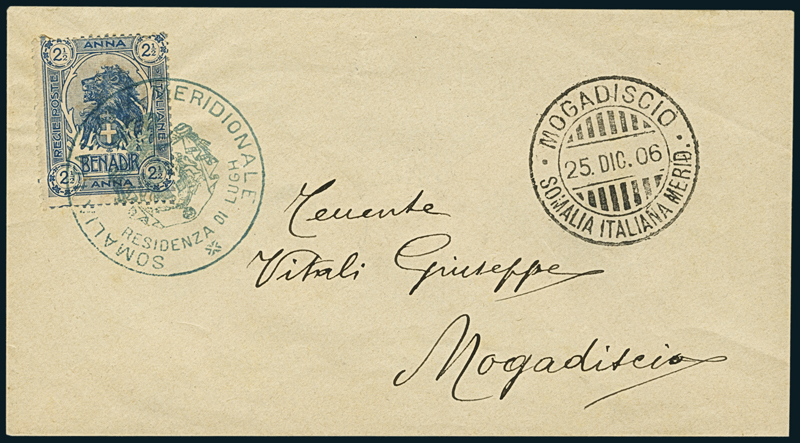 2½ ANNA 2½
REGIE POSTE
ITALIANE
BENADIR
2½ ANNA 2½
SOMALIA MERIDIONALE
RESIDENZA DI LUGH
MOGADISCIO
25. DIC. 06
SOMALIA ITALIANA MERID.
Tenente
Vitali Giuseppe
Mogadiscio